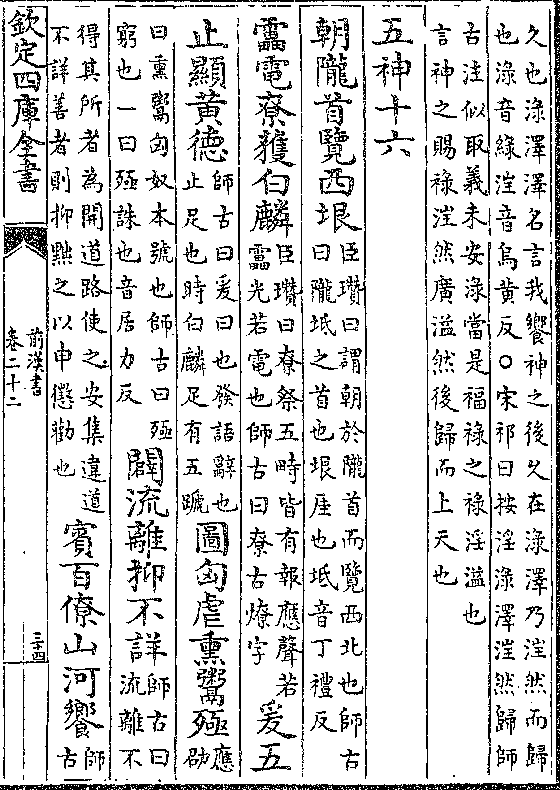 久也淥澤澤名言我饗神之後久在淥澤乃淫然而歸
也淥音緑淫音烏黄反○宋祁曰按淫淥澤淫然歸師
古注似取義未安淥當是福祿之祿淫溢也
言神之賜祿淫然廣溢然後歸而上天也
五神十六
朝隴首覽西垠臣瓚曰謂朝於隴首而覽西北也師古
曰隴坻之首也垠厓也坻音丁禮反
靁電尞獲白麟臣瓚曰尞祭五畤皆有報應聲若
靁光若電也師古曰尞古燎字
爰五
止顯黄德師古曰爰曰也發語辭也
止足也時白麟足有五蹏
圖匈虐熏鬻殛應劭
曰熏鬻匈奴本號也師古曰殛
窮也一曰殛誅也音居力反
闢流離抑不詳師古曰
流離不
得其所者為開道路使之安集違道
不詳善者則抑黜之以申懲勸也
賓百僚山河饗師
古
欽定四庫全書
前漢書
卷二十二
三十四